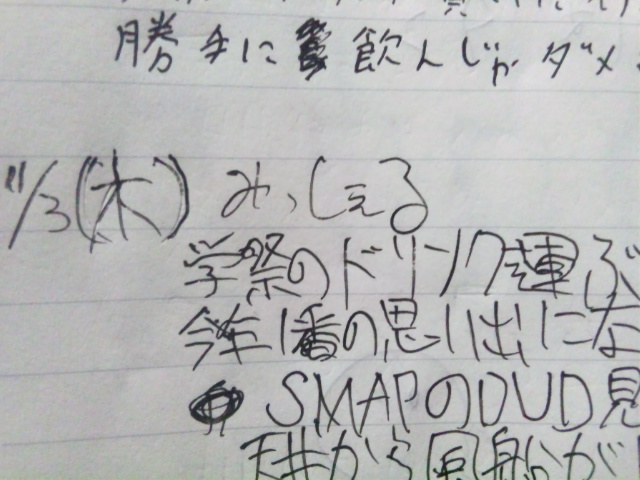 勝手に飲んじゃダメ
11/3(木) みっしぇる
学祭のドリンク運ぶ
今年1番の思い出にな
SMAPのDVD見
天井から風船が